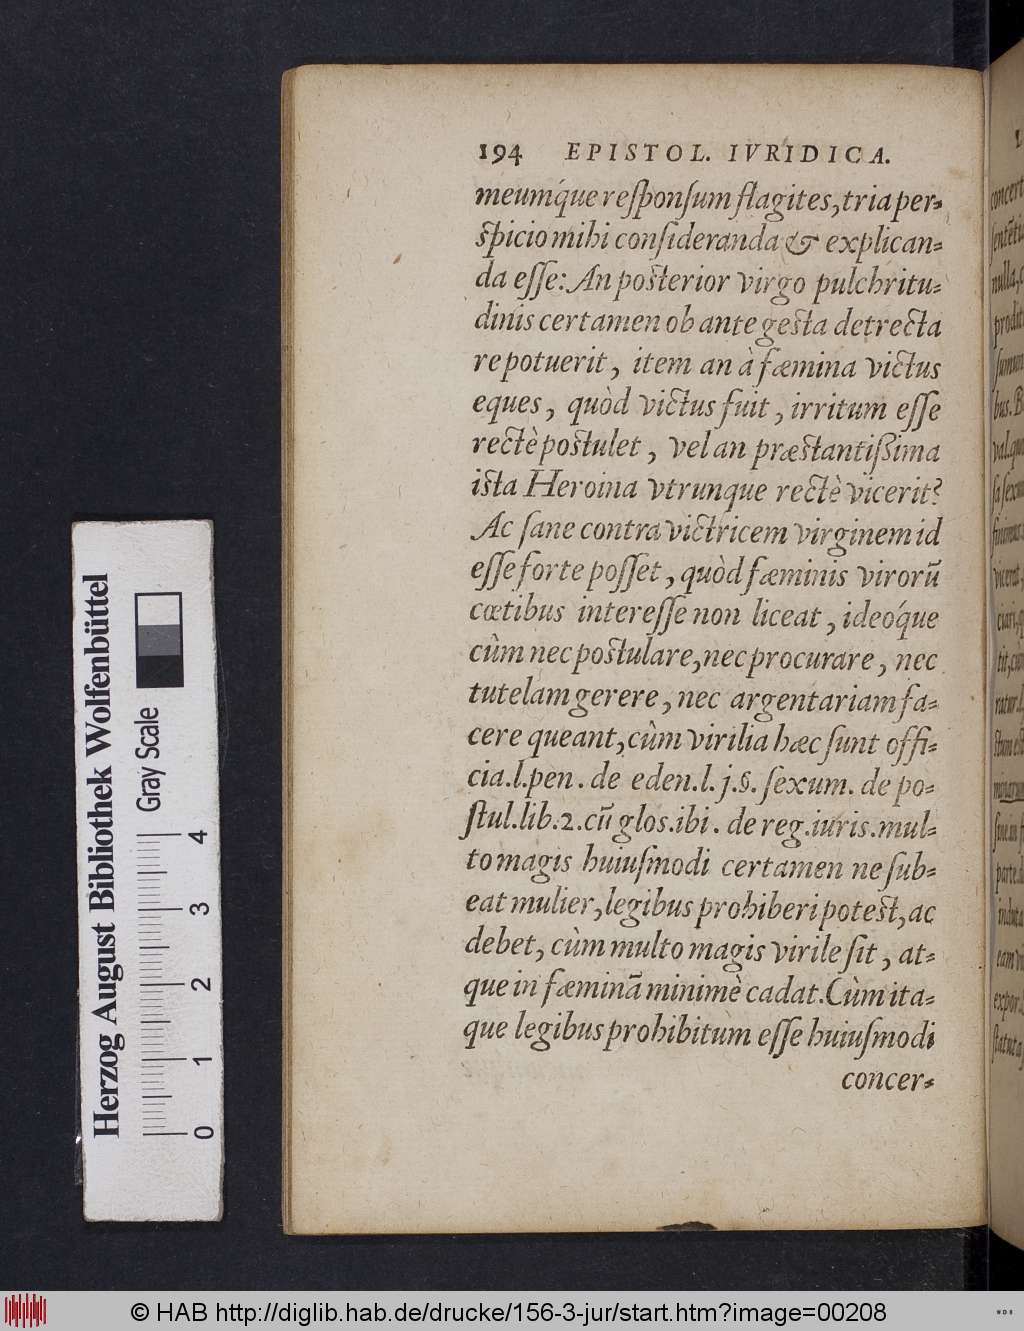 194 EPISTOL. IVRIDICA.
meumq́ue reſponſum flagites, tria per-
ſpicio mihi conſideranda & explican-
da eſſe: An poſterior virgo pulchritu-
dinis certamen ob ante geſta detrecta
re potuerit, item an à fæmina victus
eques, quòd victus fuit, irritum eſſe
rectè poſtulet, vel an præſtantiſſima
iſta Heroina vtrunque rectè vicerit?
Ac ſane contra victricem virginem id
eſſe forte poſſet, quòd fæminis virorū
cœtibus intereſſe non liceat, ideóque
cùm nec poſtulare, nec procurare, nec
tutelam gerere, nec argentariam fa-
cere queant, cùm virilia hæc ſunt offi-
cia.l.pen. de eden.l. j.§. ſexum. de po-
ſtul.lib.2.cū glos.ibi. de reg.iuris.mul-
to magis huiuſmodi certamen ne ſub-
eat mulier, legibus prohiberi poteſt, ac
debet, cùm multo magis virile ſit, at-
que in fæminā minimè cadat. Cùm ita-
que legibus prohibitum eſſe huiuſmodi
concer-
Herzog August Bibliothek Wolfenbüttel
Gray Scale
0 1 2 3 4
© HAB http://diglib.hab.de/drucke/156-3-jur/start.htm?image=00208